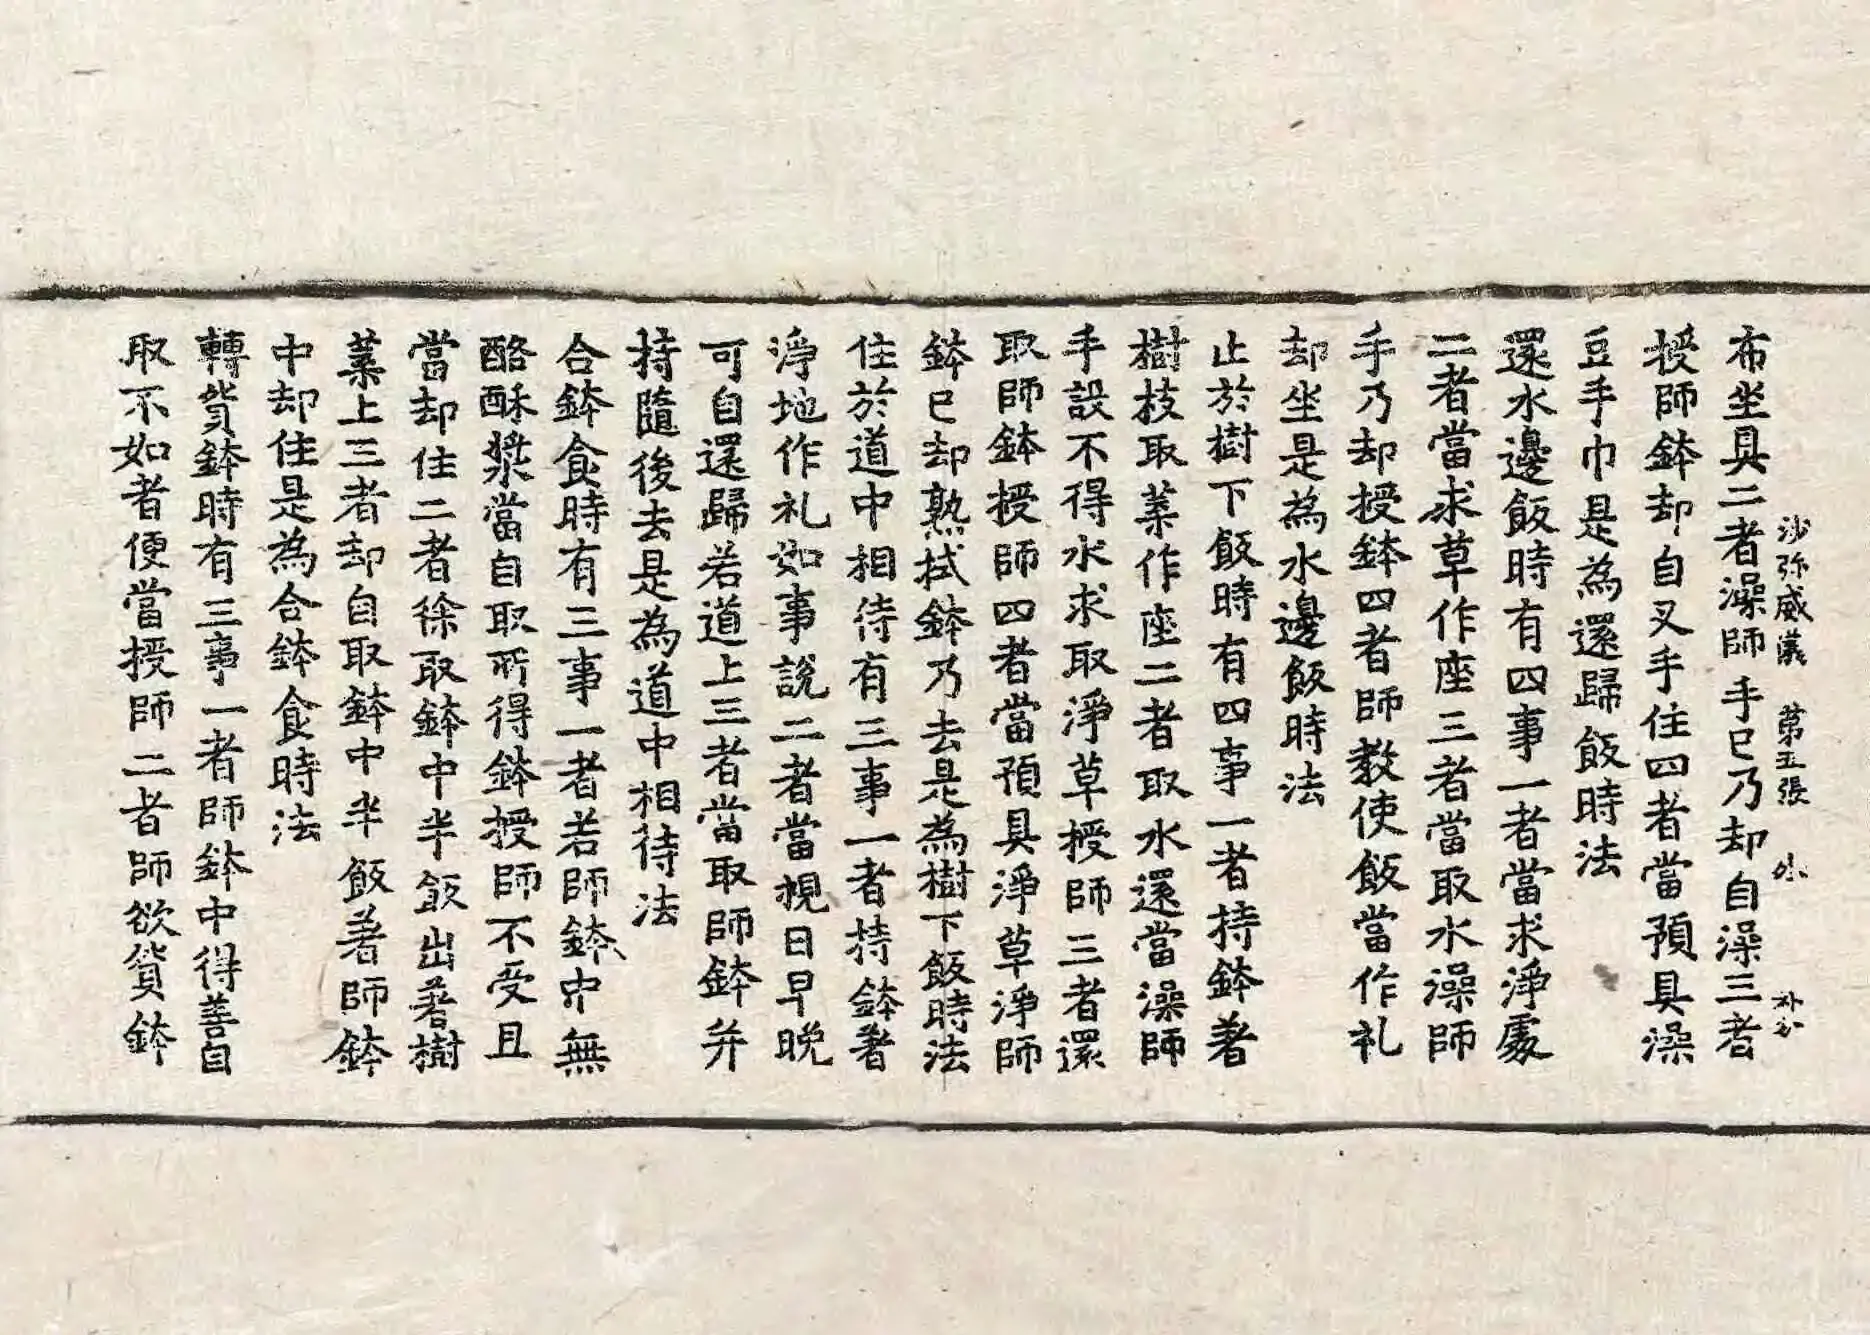 沙弥威儀 第五張 外
布坐具二者澡師手已乃却自澡三者
授師鉢却自叉手住四者當預具澡
豆手巾是為還歸飯時法
還水邊飯時有四事一者當求淨處
二者當求草作座三者當取水澡師
手乃却授鉢四者師教使飯當作礼
却坐是為水邊飯時法
止於樹下飯時有四事一者持鉢著
樹枝取葉作座二者取水還當澡師
手設不得水求取淨草授師三者還
取師鉢授師四者當預具淨草淨師
鉢已却熟拭鉢乃去是為樹下飯時法
住於道中相待有三事一者持鉢著
淨地作礼如事說二者當視日早晚
可自還歸若道上三者當取師鉢并
持隨後去是為道中相待法
合鉢食時有三事一者若師鉢中無
酪酥漿當自取所得鉢授師不受且
當却住二者徐取鉢中半飯出著樹
葉上三者却自取鉢中半飯著師鉢
中却住是為合鉢食時法
轉貿鉢時有三事一者師鉢中得善自
取不如者便當授師二者師欲貿鉢